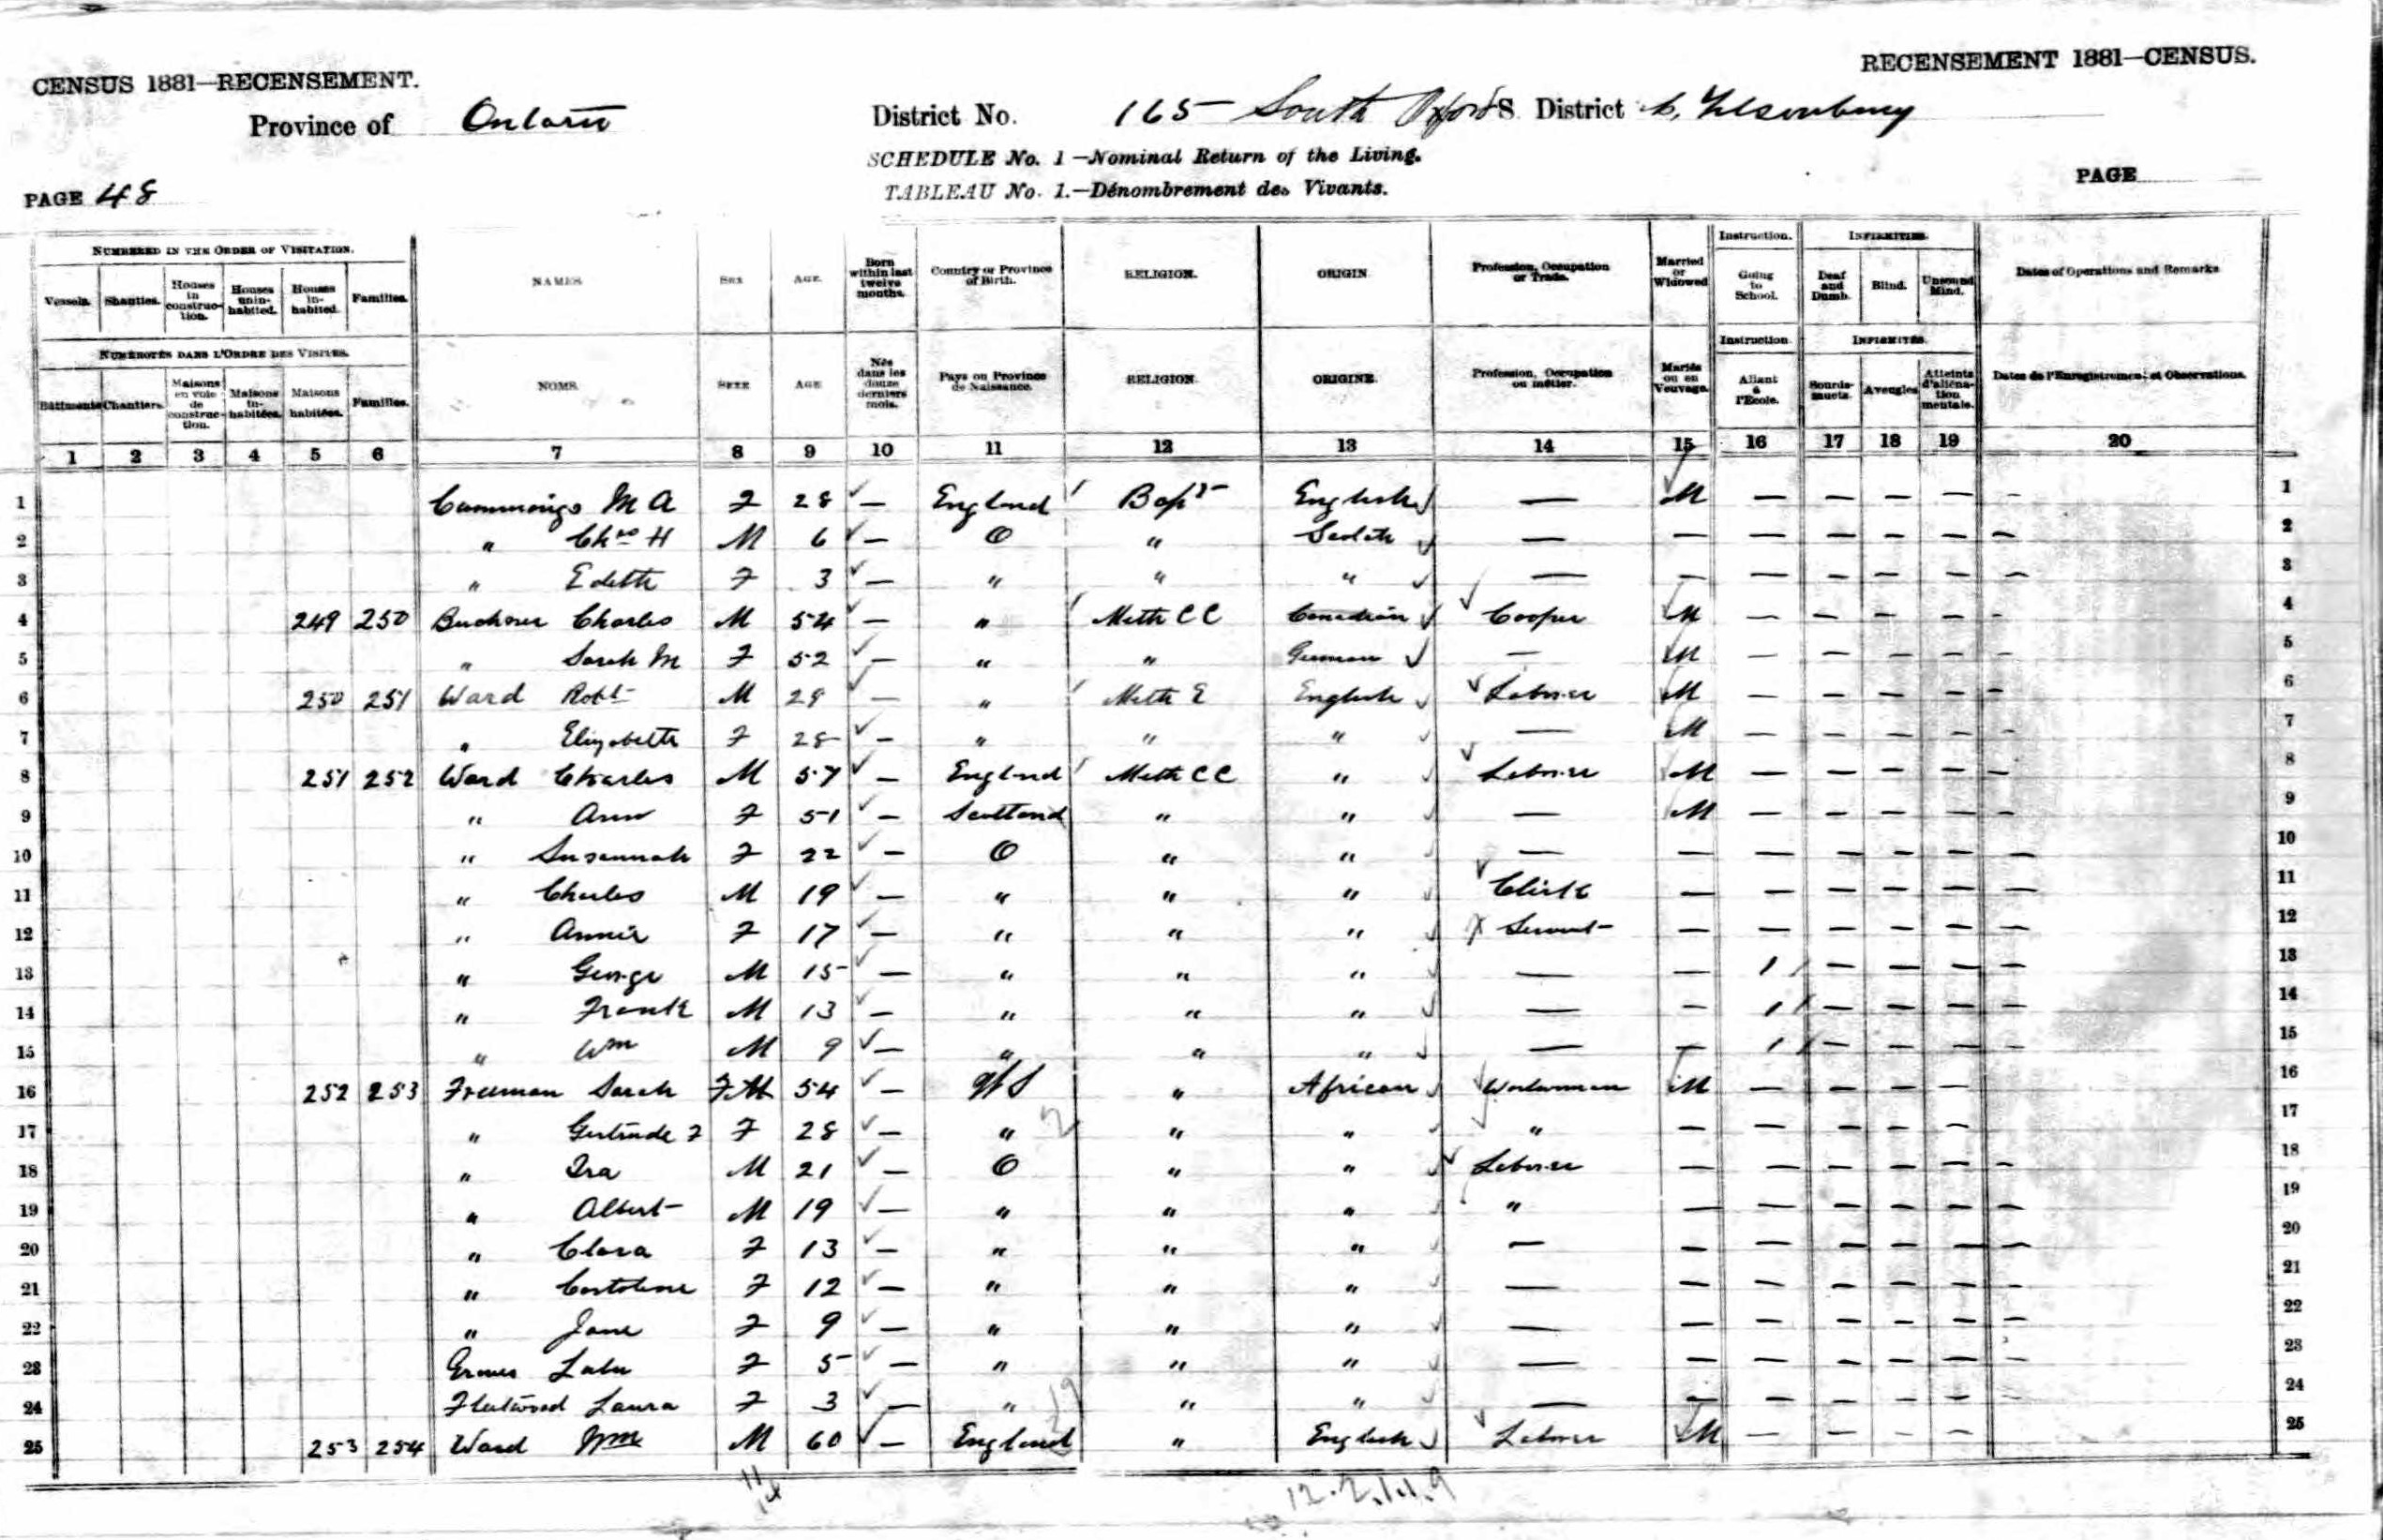 CENSUS 1881—RECENSEMENT.
RECENSEMENT 1881—CENSUS.
Province of Ontario
District No. 165 South Oxford S. District Tilsonburg
SCHEDULE No. 1—Nominal Return of the Living.
TABLEAU No. 1.—Dénombrement des Vivants.
PAGE 48
PAGE
NUMBERED IN THE ORDER OF VISITATION. NAMES SEX AGE. Born within last twelve months. Country or Province of Birth. RELIGION. ORIGIN. Profession, Occupation or Trade. Married or Widowed Instruction. Going to School. INFIRMITIES. Deaf and Dumb. Blind. Unsound Mind. Dates of Operations and Remarks
Vessels. Shanties. Houses in construction. Houses uninhabited. Houses inhabited. Families.
NUMÉROTÉS DANS L'ORDRE DES VISITES. NOMS. SEXE AGE Nés dans les douze derniers mois. Pays ou Province de Naissance. RELIGION. ORIGINE. Profession, Occupation ou métier. Mariés ou en Veuvage. Instruction. Allant à l'École. INFIRMITÉS. Sourds-muets. Aveugles Atteints d'aliénation mentale. Dates de l'Enregistrement et Observations.
Bâtiments Chantiers. Maisons en voie de construction. Maisons inhabitées. Maisons habitées. Familles.
1 2 3 4 5 6 7 8 9 10 11 12 13 14 15 16 17 18 19 20
1 Cummings M A F 28 — England Bapt English — M — — — — - 1
2 " Chas H M 6 — O " Scotch — — — — — — — 2
3 " Edith F 3 — " " " — — — — — — — 3
4 249 250 Buchner Charles M 54 — " Meth C C Canadian Cooper M — — — — - 4
5 " Sarah M F 52 — " " German — M — — — — - 5
6 250 251 Ward Robt M 29 — " Meth E English Laborer M — — — — - 6
7 " Elizabeth F 28 — " " " — M — — — — - 7
8 251 252 Ward Charles M 57 — England Meth C C " Laborer M — — — — — 8
9 " Ann F 51 — Scotland " " — M — — — — - 9
10 " Susannah F 22 — O " " — — — — — — — 10
11 " Charles M 19 — " " " Clerk — — — — — — 11
12 " Annie F 17 — " " " Servant — — — — — — 12
13 " George M 15 — " " " — — 1 — — — — 13
14 " Frank M 13 — " " " — — 1 — — — — 14
15 " Wm M 9 — " " " — — 1 — — — — 15
16 252 253 Freeman Sarah F 54 — " African Workwoman M — — — — 16
17 " Gertrude F F 28 — " " " " — — — — — 17
18 " Ira M 21 — O " " Laborer — — — — — — 18
19 " Albert M 19 — " " " " — — — — — — 19
20 " Clara F 13 — " " " — — — — — — — 20
21 " F 12 — " " " — — — — — — - 21
22 " Jane F 9 — " " " — — — — — — - 22
23 Lulu F 5 — " " " — — — — — — — 23
24 Fleetwood Laura F 3 — " " " — — — — — — - 24
25 253 254 Ward Wm M 60 — England " English Laborer M — — — — 25